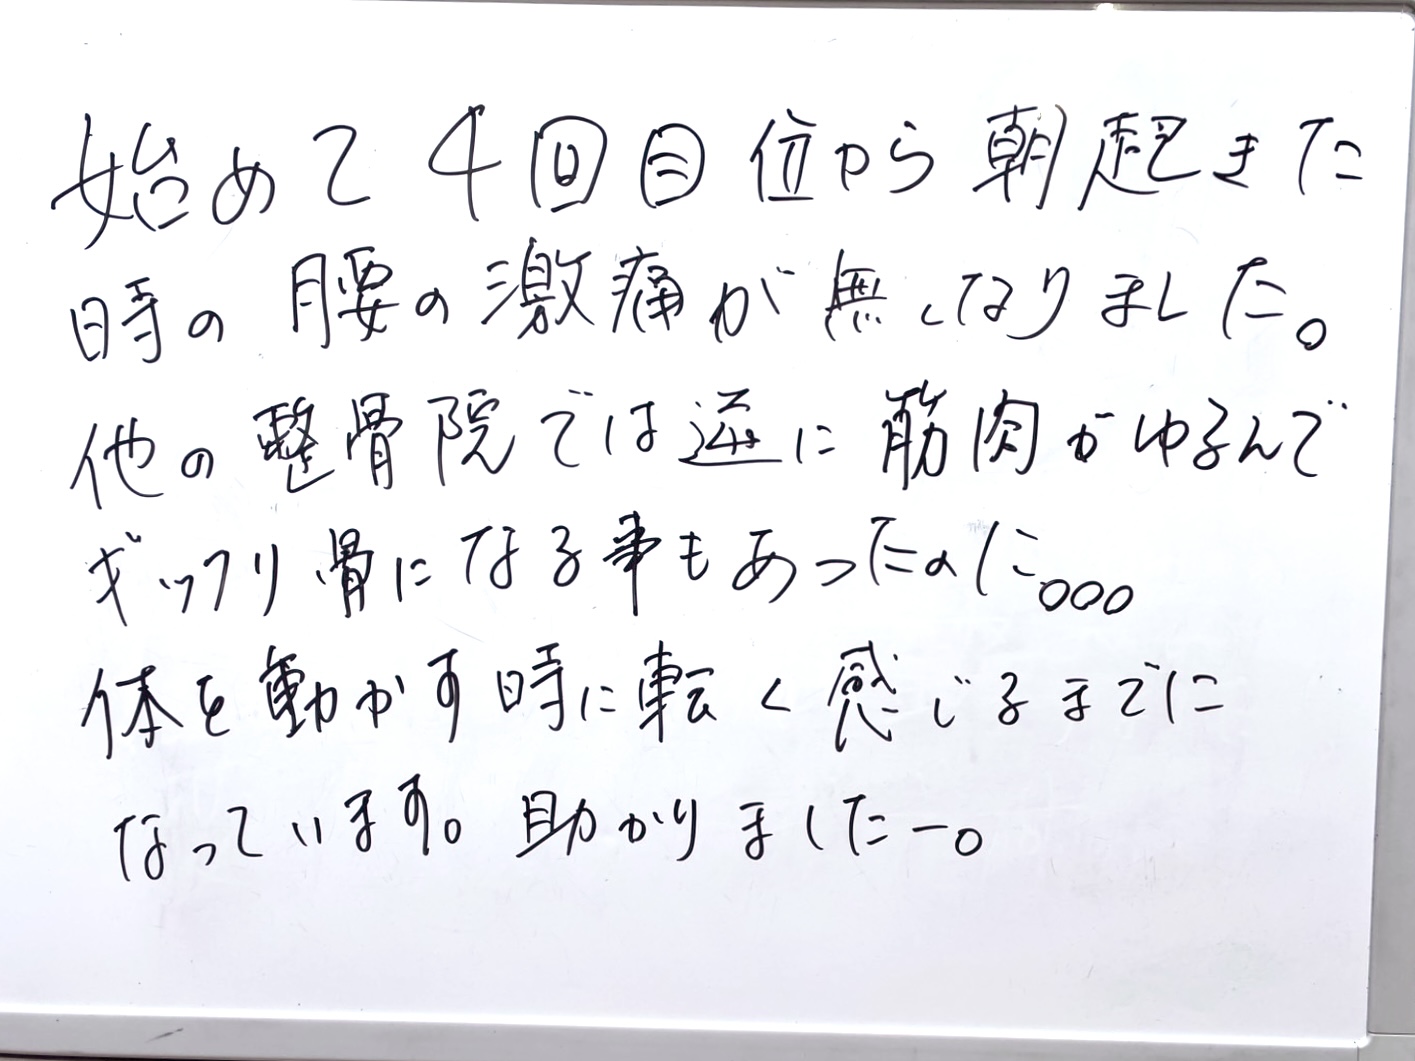 始めて4回目位から朝起きた
時の腰の激痛が無くなりました。
他の整骨院では逆に筋肉がゆるんで
ギックリ骨になる事もあったのに。。。
体を動かす時に転く感じるまでに
なっています。助かりましたー。